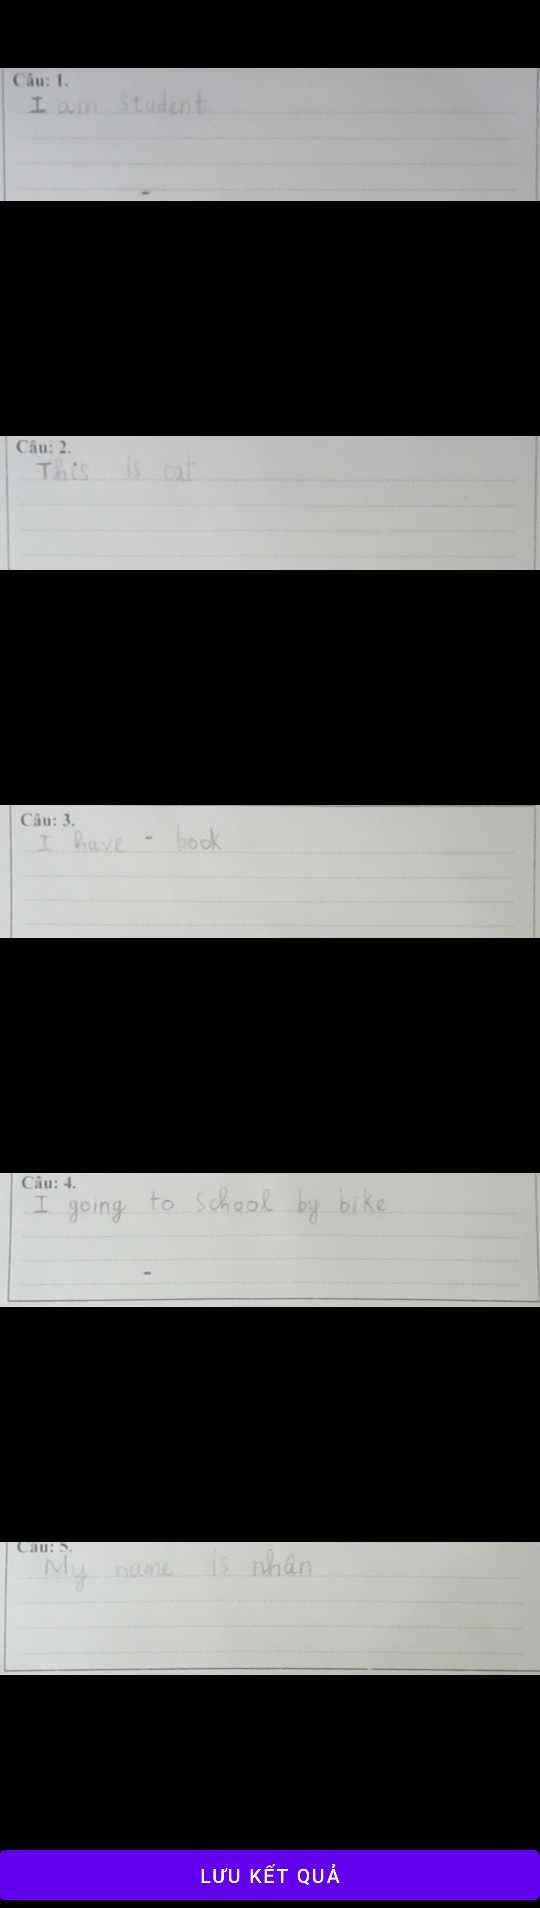 Câu: 1.
I am student
Câu: 2.
This is cat
Câu: 3.
I have - book
Câu: 4.
I going to school by bike
Câu: 5.
My name is nhân
LƯU KẾT QUẢ